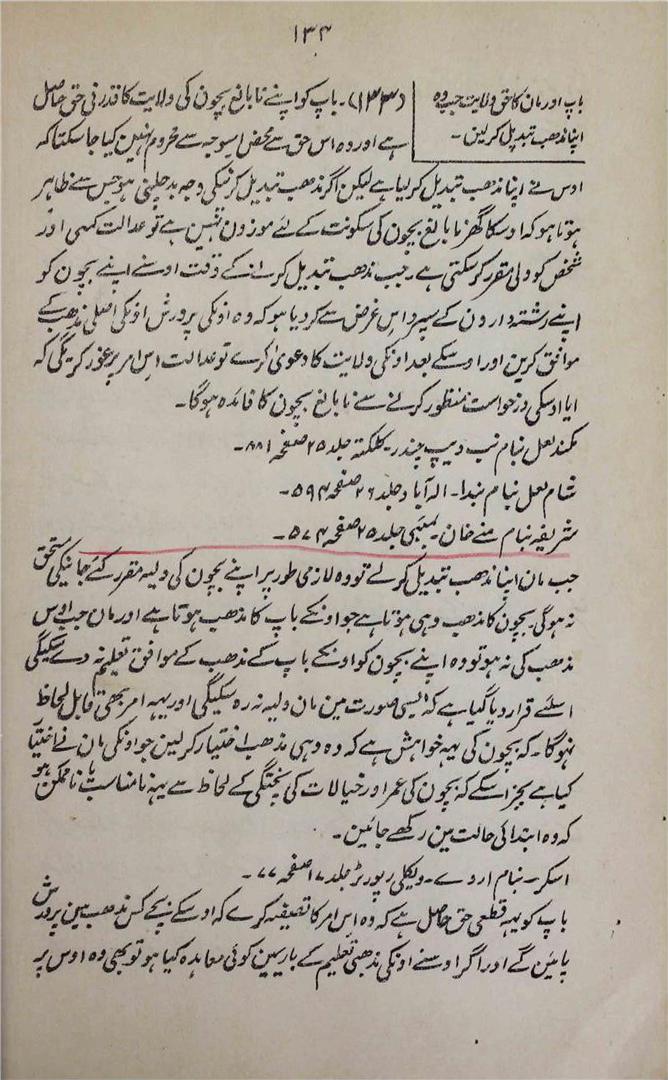 ۱۳۴
باپ اور مان کا حق ولایت جب وہ
اپنا مذھب تبدیل کرلین۔
(۱۳۳)۔ باپ کو اپنے نابالغ بچون کی ولایت کا قدرتی حق حاصل
ہے اور وہ اس حق سے محض اسوجہ سے محروم نہین کیا جا سکتا کہ
اوس نے اپنا مذھب تبدیل کر لیا ہے لیکن اگر مذھب تبدیل کرنیکی وجہ بدچلنی ہو جس سے ظاہر
ہوتا ہو کہ اوسکا گھر نابالغ بچون کی سکونت کے لئے موزون نہین ہے تو عدالت کسی اور
شخص کو ولی مقرر کر سکتی ہے۔ جب مذھب تبدیل کرنے کے وقت اوسنے اپنے بچون کو
اپنے رشتہ دارون کے سپرد اس غرض سے کر دیا ہو کہ وہ اونکی پرورش اونکی اصلی مذھب کے
موافق کرین اور اوسکے بعد اونکی ولایت کا دعویٰ کرے تو عدالت اس امر پر غور کریگی کہ
ایا اوسکی درخواست منظور کرنے سے نابالغ بچون کا فائدہ ہوگا۔
مکند لعل بنام نب دیپ چندر۔ کلکتہ جلد ۲۵ صفحہ ۸۸۱۔
شام لعل بنام بندا۔ الہ آباد جلد ۲۶ صفحہ ۵۹۴۔
شریفہ بنام منے خان۔ بمبئی جلد ۲۵ صفحہ ۵۷۴۔
جب مان اپنا مذھب تبدیل کرلے تو وہ لازمی طور پر اپنے بچون کی ولیہ مقرر کئے جانیکی مستحق
نہ ہوگی۔ بچون کا مذھب وہی ہوتا ہے جو اونکے باپ کا مذھب ہوتا ہے اور مان جب اوس
مذھب کی نہ ہو تو وہ اپنے بچون کو اونکے باپ کے مذھب کے موافق تعلیم نہ دے سکیگی
اسلئے قرار دیا گیا ہے کہ ایسی صورت مین مان ولیہ نہ رہ سکیگی اور یہہ امر بھی قابل لحاظ
نہوگا۔ کہ بچون کی یہہ خواہش ہے کہ وہ وہی مذھب اختیار کرلین جو اونکی مان نے اختیار
کیا ہے بجز اسکے کہ بچون کی عمر اور خیالات کی پختگی کے لحاظ سے یہہ نامناسب یا ناممکن ہو
کہ وہ ابتدائی حالت مین رکھے جائین۔
اسکر۔ بنام اردے۔ ویکلی رپورٹر جلد ۱۷ صفحہ ۷۷۔
باپ کو یہہ قطعی حق حاصل ہے کہ وہ اس امر کا تصفیہ کرے کہ اوسکے بچے کس مذھب مین پرورش
پائین گے اور اگر اوسنے اونکی مذھبی تعلیم کے بارہمین کوئی معاہدہ کیا ہو تو بھی وہ اوس پر